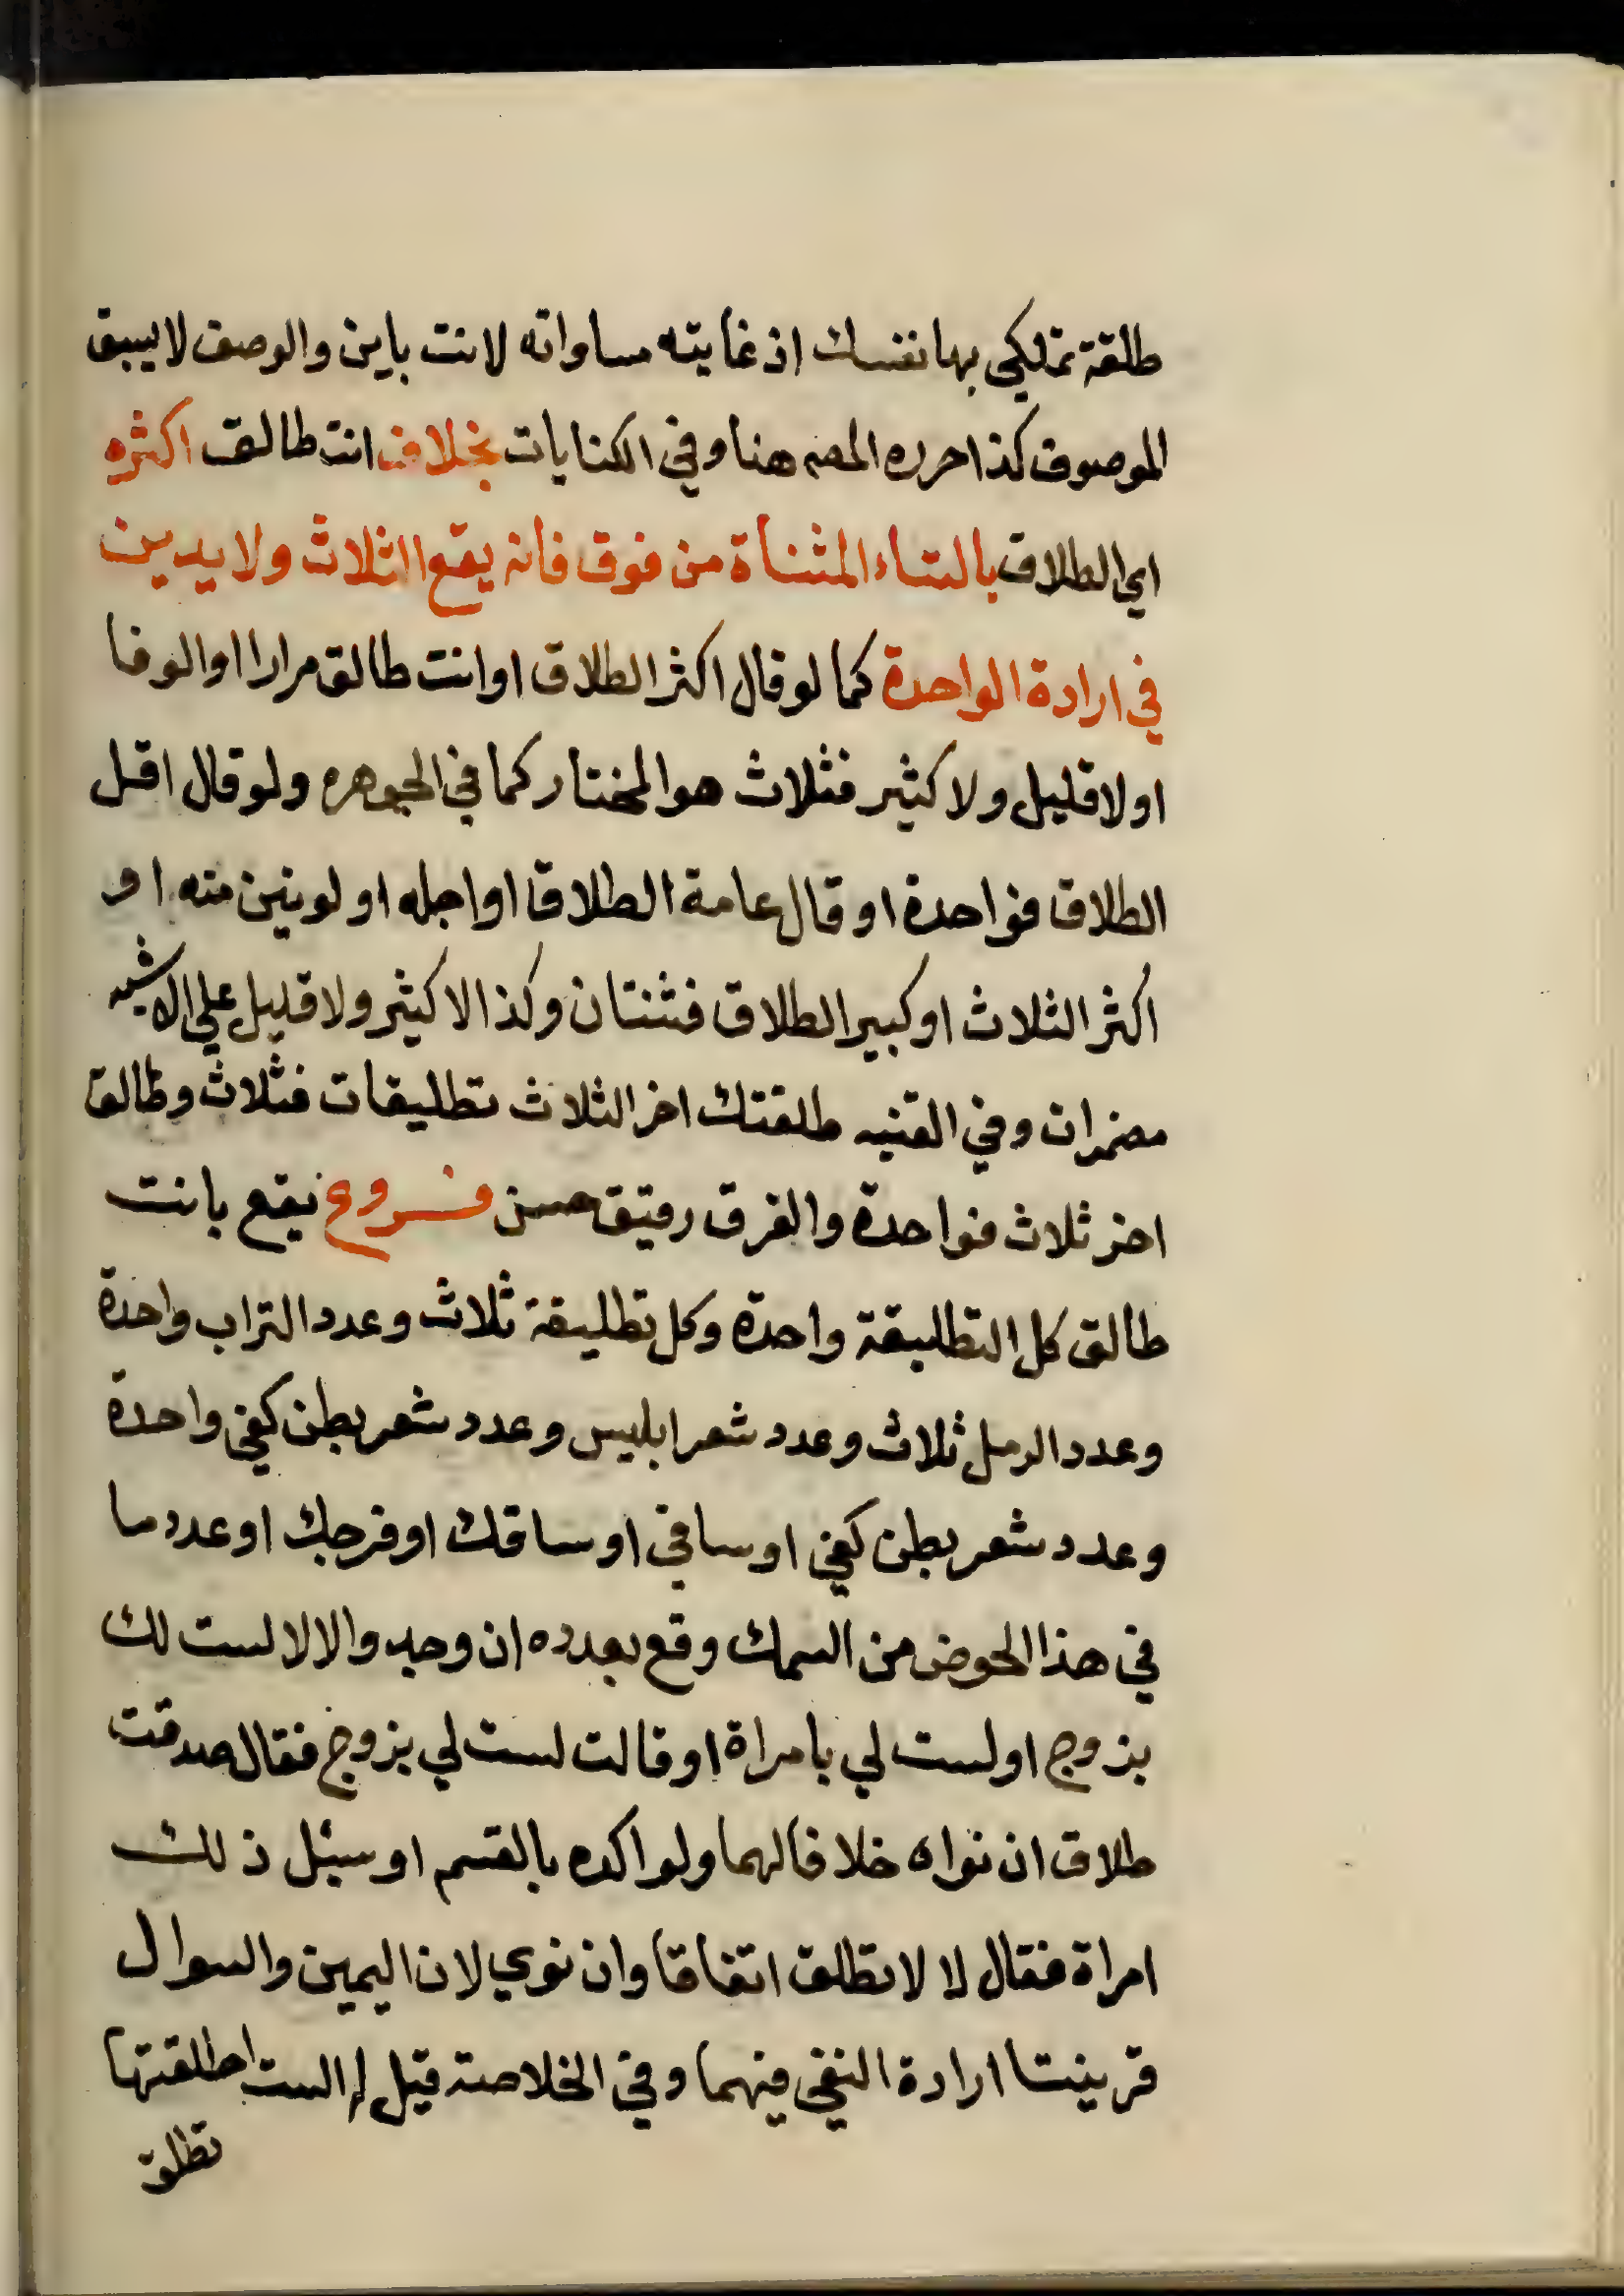 طلقة تملكي بها نفسك اذ غايته مساواته لانت باين والوصف لا يسبق
الموصوف كذا حرره المصه هنا وفي الكنايات بخلاف انت طالق اكثره
اي الطلاق بالتاء المثناة من فوق فانه يقع الثلاث ولا يدين
في ارادة الواحدة كما لو قال اكثر الطلاق او انت طالق مرارا او الوفا
او لا قليل ولا كثير فثلاث هو المختار كما في الجوهره ولو قال اقل
الطلاق فواحدة او قال عامة الطلاقا او اجله او لونين منه او
اكثر الثلاث او كبير الطلاق فثنتان وكذا لا كثير ولا قليل على الاشبه
مضمرات وفي القنيه طلقتك اخر الثلاث تطليقات فثلاث وطالق
اخر ثلاث فواحدة والفرق رقيق حسن فروع يقع بانت
طالق كل التطليقة واحدة وكل تطليقة ثلاث وعدد التراب واحدة
وعدد الرمل ثلاث وعدد شعر ابليس وعدد شعر بطن كفي واحدة
وعدد شعر بطن كفي او ساقي او ساقك او فرجك او عدد ما
في هذا الحوض من السمك وقع بعدده ان وجد والا لا لست لك
بزوج او لست لي بامراة او قالت لست لي بزوج فقال صدقت
طلاق ان نواه خلافا لهما ولو اكده بالقسم او سئل ذلك
امراة فقال لا لا تطلق اتفاقا وان نوي لان اليمين والسوال
قرينتا ارادة النفي فيهما وفي الخلاصة قيل له الست طلقتها
تطلق